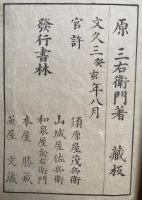 原 三右衛門著 藏板
文久三癸亥年八月
官許
發行書林
須原屋茂兵衛
山城屋佐兵衛
和泉屋金右衛門
本屋 勝藏
英屋 文藏